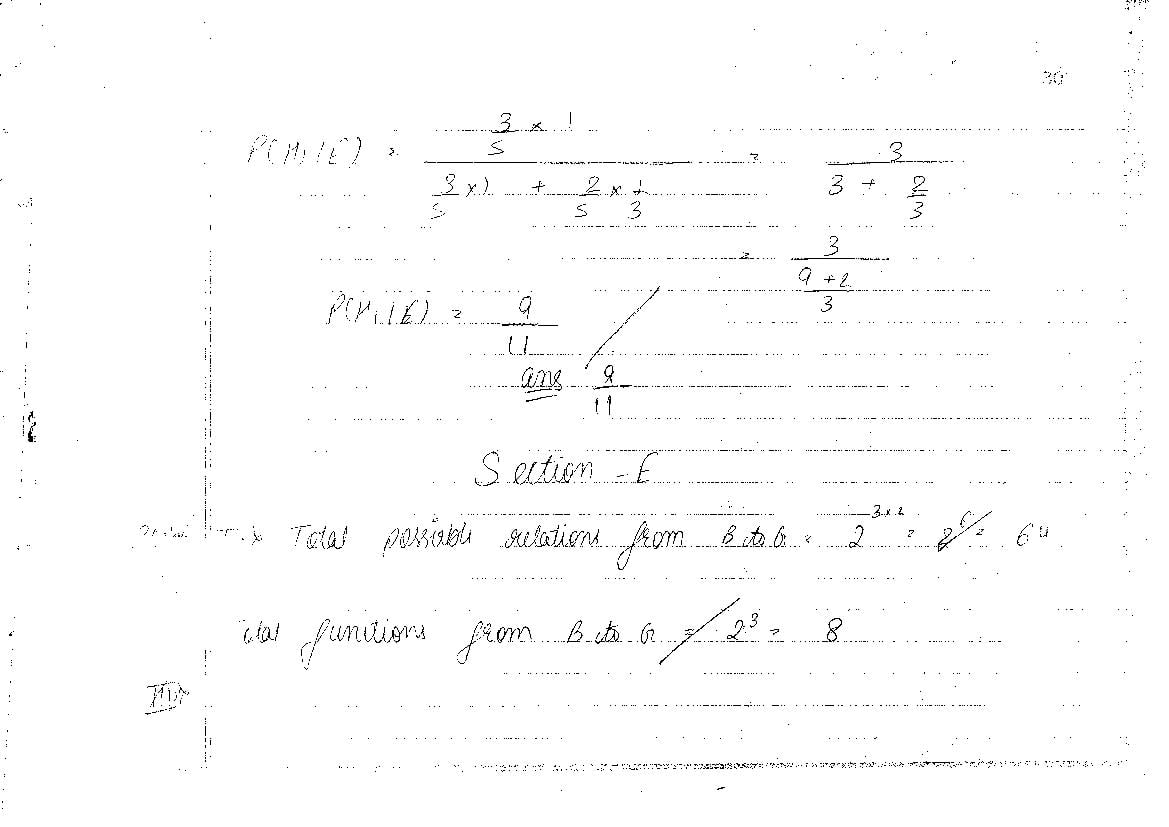 30
P(H1/E) = (3/5 × 1) / (3/5 × 1 + 2/5 × 1/3) = 3 / (3 + 2/3)
= 3 / ((9+2)/3)
P(H1/E) = 9/11
ans 9/11
Section - E
Total possible relations from B to G = 2^(3×2) = 2^6 = 64
otal functions from B to G = 2^3 = 8